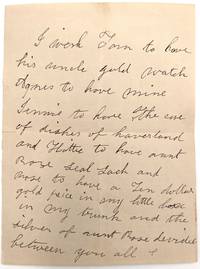 I wish Tom to have
his uncle gold watch
Agnes to have mine
Jennie to have the one
of dishes of haverland
and Hattie to have aunt
Rose Seal Sack and
Rose to have a Ten dollar
gold peice in my little box
in my trunk and the
silver of aunt Rose devided
between you all